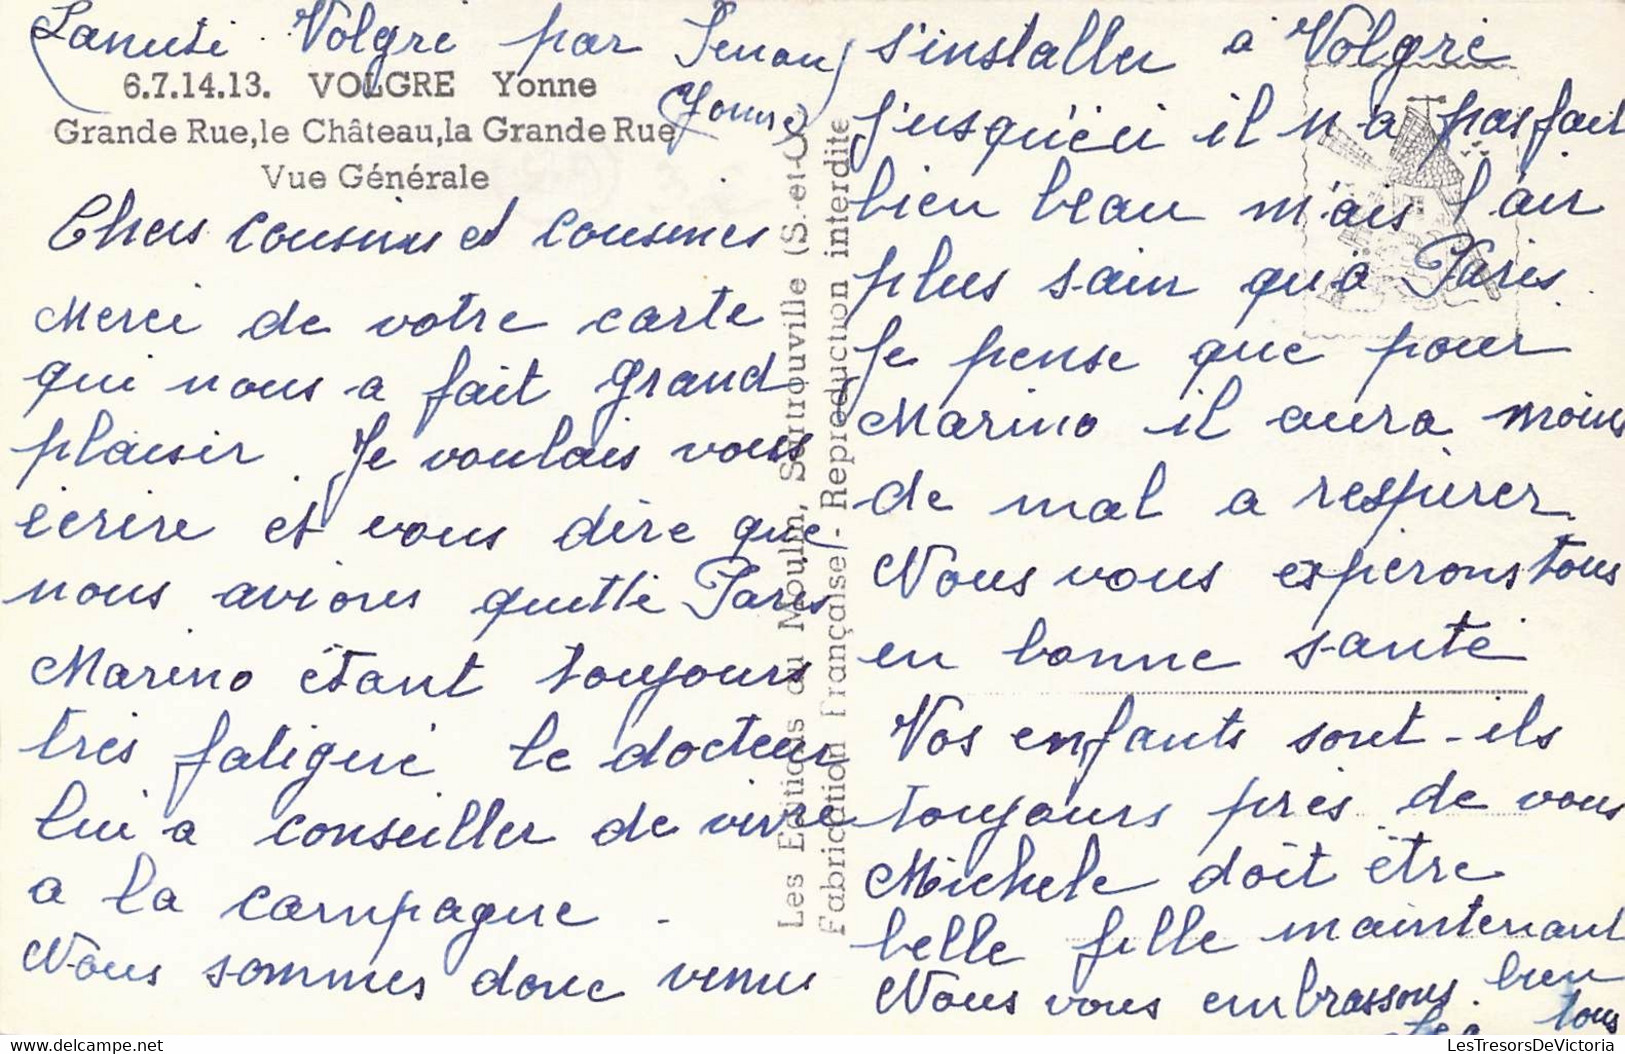 Volgré par Senan
(Yonne)
6.7.14.13. VOLGRE Yonne
Grande Rue,le Château,la Grande Rue
Vue Générale
Chers cousins et cousines
Merci de votre carte
qui nous a fait grand
plaisir. Je voulais vous
écrire et vous dire que
nous avions quitté Paris
Marino étant toujours
très fatigué le docteur
lui a conseiller de vivre
a la campagne -
Nous sommes donc venus
s'installer a Volgré
jusqu'ici il n'a pas fait
bien beau m'ais l'air
plus sain qu'a Paris.
Je pense que pour
Marino il aura moins
de mal a respirer.
Nous vous espérons tous
en bonne santé
Vos enfants sont-ils
toujours près de vous
Michele doit être
belle fille maintenant
Nous vous embrassons bien
tous
Les Editions du Moulin, Sartrouville (S.-et-O.)
Fabrication Française - Reproduction interdite
www.delcampe.net
LesTresorsDeVictoria